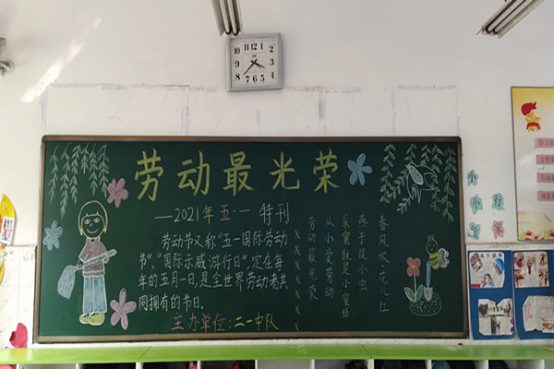 劳动最光荣
—2021年五·一特刊
劳动节又称"五一国际劳动
节""国际示威游行日",定在每
年的五月一日,是全世界劳动者共
同拥有的节日.
主办单位:二一中队
春风吹,花儿红
燕子捉小虫
采蜜就是小蜜蜂
从小爱劳动
劳动最光荣
10 11 12 1 2 3 4 5 6 7 8 9